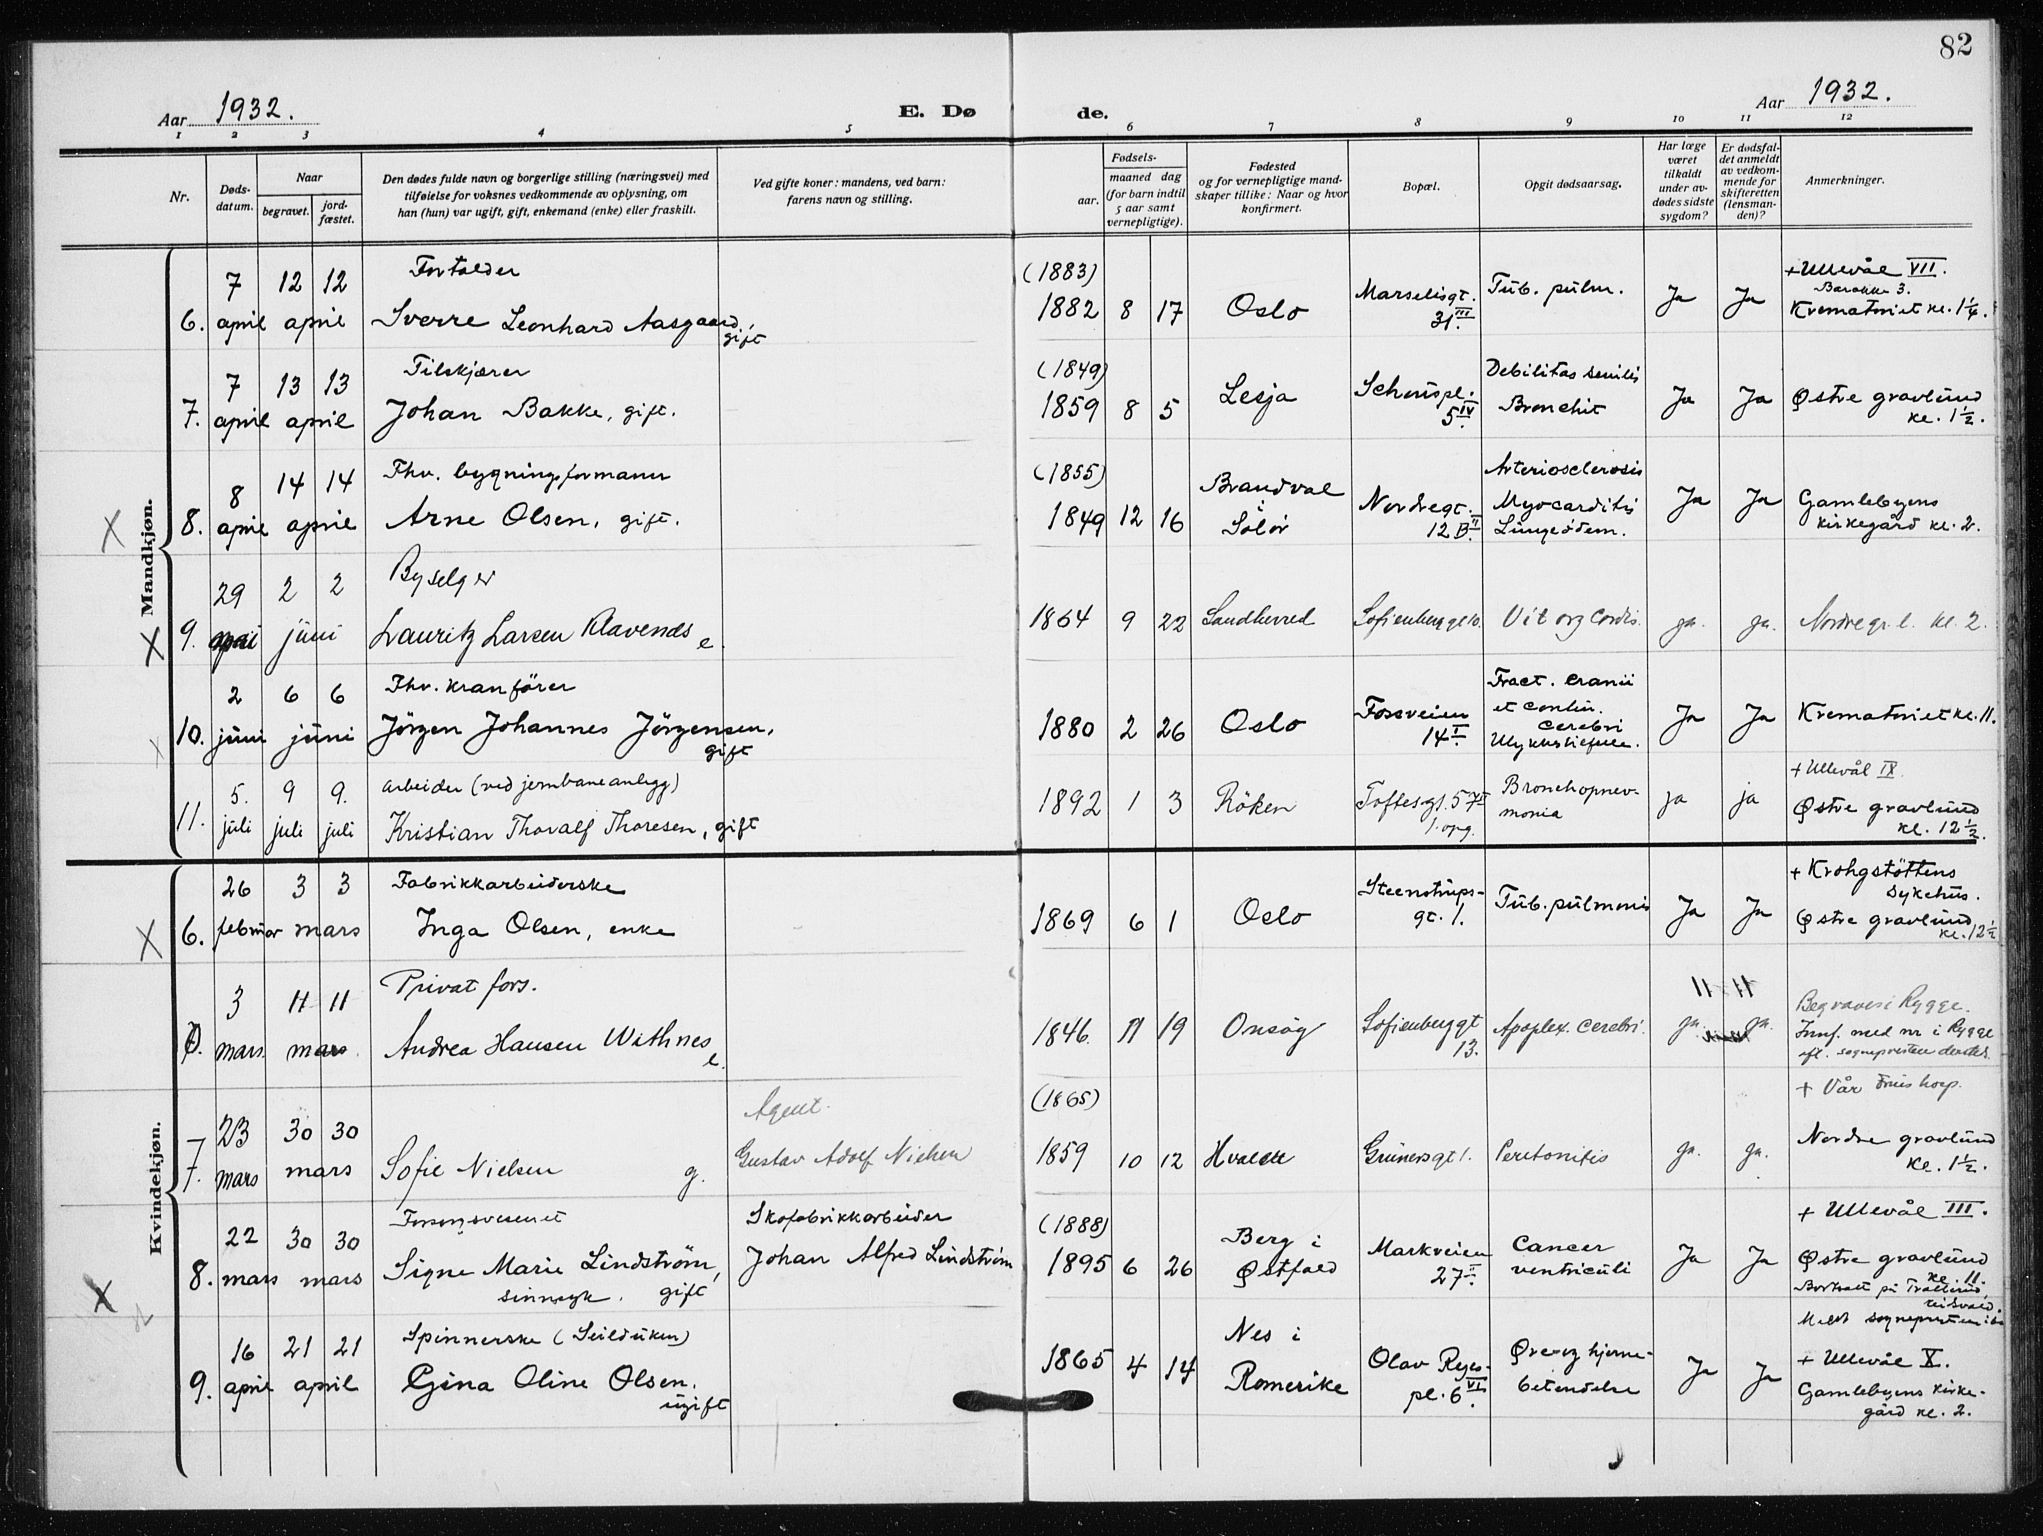 82
Aar 1932. E. Dø de. Aar 1932.
1 2 3 4 5 6 7 8 9 10 11 12
Nr.
Døds-
datum.
Naar
begravet.
jord-
fæstet.
Den dødes fulde navn og borgerlige stilling (næringsvei) med
tilføielse for voksnes vedkommende av oplysning, om
han (hun) var ugift, gift, enkemand (enke) eller fraskilt.
Ved gifte koner: mandens, ved barn:
farens navn og stilling.
Fødsels-
aar.
maaned dag
(for barn indtil
5 aar samt
vernepligtige).
Fødested
og for vernepligtige mand-
skaper tillike: Naar og hvor
konfirmert.
Bopæl.
Opgit dødsaarsag.
Har læge
været
tilkaldt
under av-
dødes sidste
sygdom?
Er dødsfal-
det anmeldt
av vedkom-
mende for
skifteretten
(lensman-
den)?
Anmerkninger.
Mandkjøn.
7 12 12 Forgolder (1883) Marselisgt. Tub. pulm. + Ullevål VII.
Barakke 3.
6. april april Sverre Leonhard Aasgaard, gift 1882 8 17 Oslo 31 III. Ja Ja Krematoriet kl. 1¼.
7 13 13 Tilskjærer (1849) Lesja Schouspl. Debilitas senilis
7. april april Johan Bakke, gift. 1859 8 5 5 IV. Bronchit Ja Ja Østre gravlund
kl. 1½.
8 14 14 Fhv. bygningsformann (1855) Brandval Arteriosclerosis
8. april april Arne Olsen, gift. 1849 12 16 i Solør Nordregt. 12 B. II Myocarditis Ja Ja Gamlebyens
Lungeødem. kirkegård kl. 2.
29 2 2 Byselger
9. mai juni Lauritz Larsen Klavends e. 1864 9 22 Sandherred Sofienberggt 10. Vit org Cordis. ja. ja. Nordre gr. l. kl. 2.
2 6 6 Fhv. kranfører Fract. cranii
et contin.
10. juni juni Jörgen Johannes Jörgensen, gift 1880 2 26 Oslo Fossveien 14 I. cerebri Ja Ja Krematoriet kl. 11.
Ulykkestilfelle.
5. 9 9. arbeider (ved jernbaneanlegg) + Ullevål IX.
11. juli juli juli Kristian Thoralf Thoresen, gift 1892 1 3 Röken Toftesgt. 57 II 1. opg. Bronchopnev-
monia ja ja Østre gravlund
kl. 12½.
Kvindekjøn.
26 3 3 Fabrikkarbeiderske Steenstrups- + Krohgstöttens
sykehus.
6. februar mars Inga Olsen, enke 1869 6 1 Oslo gt. 1. Tub. pulmonis Ja Ja Østre gravlund
kl. 12½
3 11 11 Privat fors. Begraves i Rygge.
mars mars Andrea Hansen Withnes e. 1846. 11 19 Onsöy Sofienberggt 13. Apoplex. cerebri. ja. ja. Innf. med nr i Rygge
eft. sognepresten dersted.
23 30 30 Agent. (1865) + Vår Frues hosp.
7. mars mars Sofie Nielsen g. Gustav Adolf Nielsen 1859 10 12 Hvaler Grünersgt 1. Peritonitis ja. ja. Nordre gravlund
kl. 1½.
22 30 30 Forsorgsvesenet Skofabrikkarbeider (1888) + Ullevål III.
8. mars mars Signe Marie Lindström, Johan Alfred Lindström 1895 6 26 Berg i Østfold Markveien 27 II. Cancer
ventriculi Ja Ja Østre gravlund
kl. 11.
sinnsyk. gift
Meldt sognepresten
16 21 21 Spinnerske (Seilduken) Nes i
9. april april Gina Oline Olsen, ugift 1865 4 14 Romerike Olav Ryes-
pl. 6 VI. Øre og hjerne-
betendelse Ja Ja + Ullevål X.
Gamlebyens kirke-
gård kl. 2.